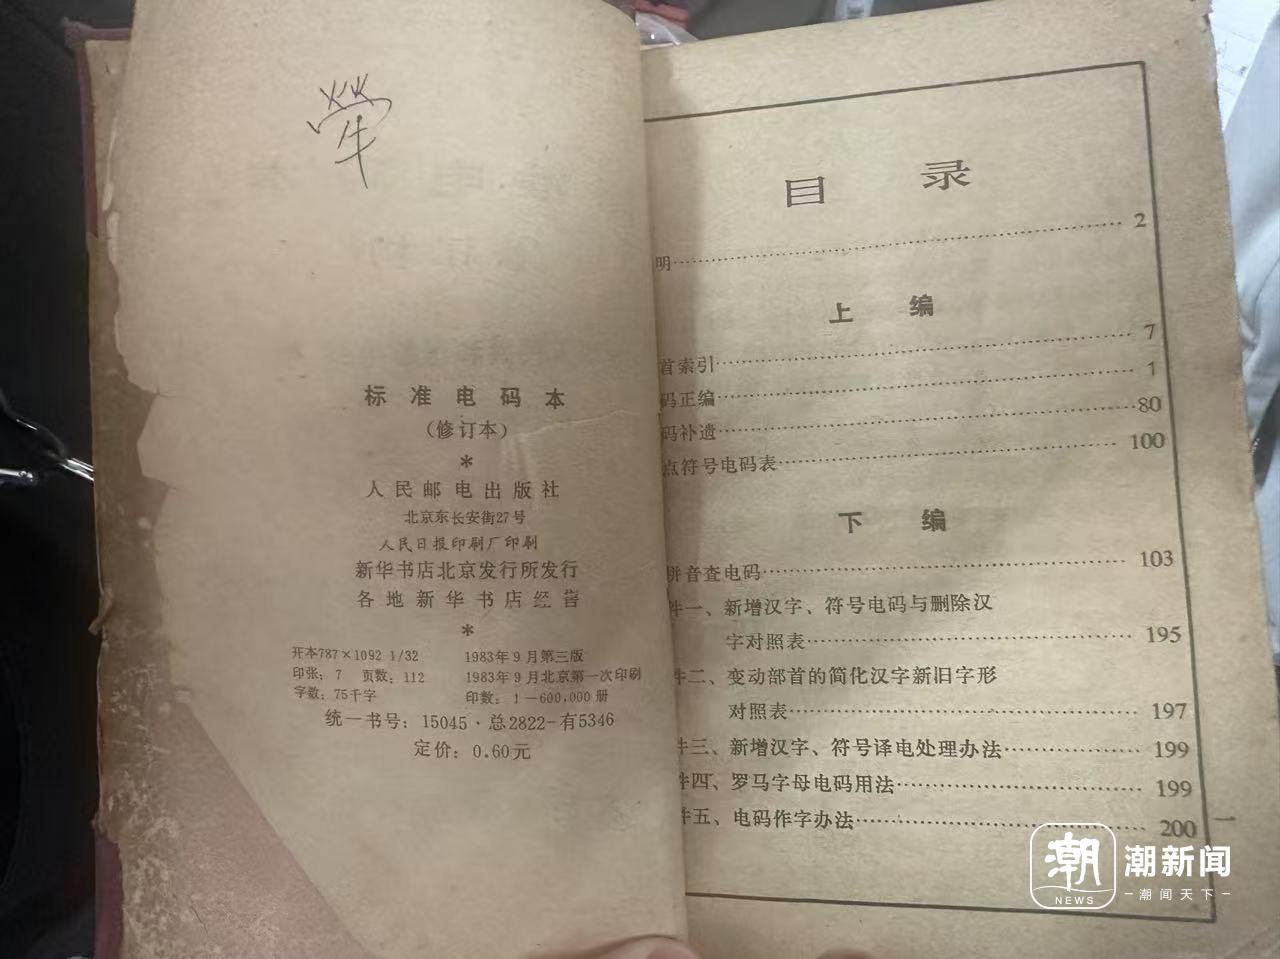 标准电码本
（修订本）
*
人民邮电出版社
北京东长安街27号
人民日报印刷厂印刷
新华书店北京发行所发行
各地新华书店经售
*
开本787×1092 1/32 1983年9月第三版
印张：7 页数：112 1983年9月北京第一次印刷
字数：75千字 印数：1—600,000册
统一书号：15045·总2822-有5346
定价：0.60元
目录
明……2
上编
首索引……7
码正编……1
码补遗……80
点符号电码表……100
下编
拼音查电码……103
件一、新增汉字、符号电码与删除汉
字对照表……195
件二、变动部首的简化汉字新旧字形
对照表……197
件三、新增汉字、符号译电处理办法……199
件四、罗马字母电码用法……199
件五、电码作字办法……200
一
潮 潮新闻
NEWS 潮闻天下